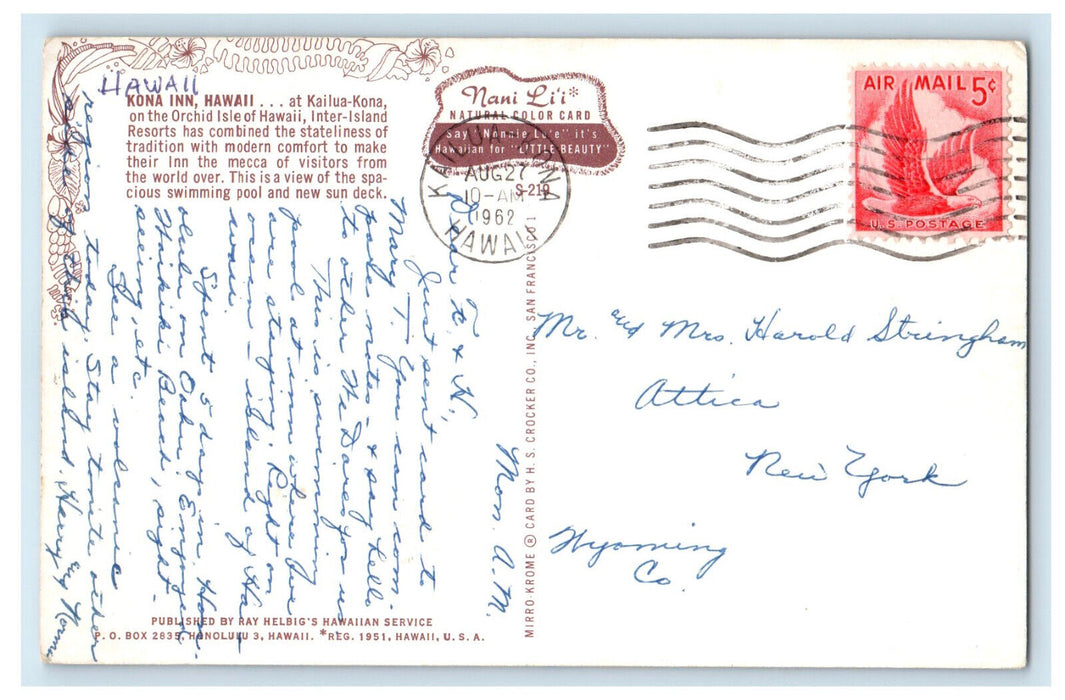 HAWAII
KONA INN, HAWAII . . . at Kailua-Kona,
on the Orchid Isle of Hawaii, Inter-Island
Resorts has combined the stateliness of
tradition with modern comfort to make
their Inn the mecca of visitors from
the world over. This is a view of the spa-
cious swimming pool and new sun deck.
Nani Li'i*
NATURAL COLOR CARD
Say "Nannie Lee" it's
Hawaiian for "LITTLE BEAUTY"
S-219
KAILUA KONA
AUG 27
10-AM
1962
HAWAII
AIR MAIL 5¢
U.S. POSTAGE
Mon. A.M.
Dear H,
Just sent card to
Mary T. You can com-
pare notes - & say hello
to other McDares for us
This is swimming
pool at inn where we
are staying. Right on
ocean - island of Ha-
waii.
Spent 5 days in Hono-
lulu on Oahu. Enjoyed
Waikiki Beach, sight-
seeing, etc.
See a volcanic
region today. Stay tonite other
side of this island. Harry and Norma
Mr. and Mrs. Harold Stringham
Attica
New York
Wyoming
Co.
MIRRO-KROME ® CARD BY H. S. CROCKER CO., INC., SAN FRANCISCO 1
PUBLISHED BY RAY HELBIG'S HAWAIIAN SERVICE
P. O. BOX 2835, HONOLULU 3, HAWAII. *REG. 1951, HAWAII, U. S. A.